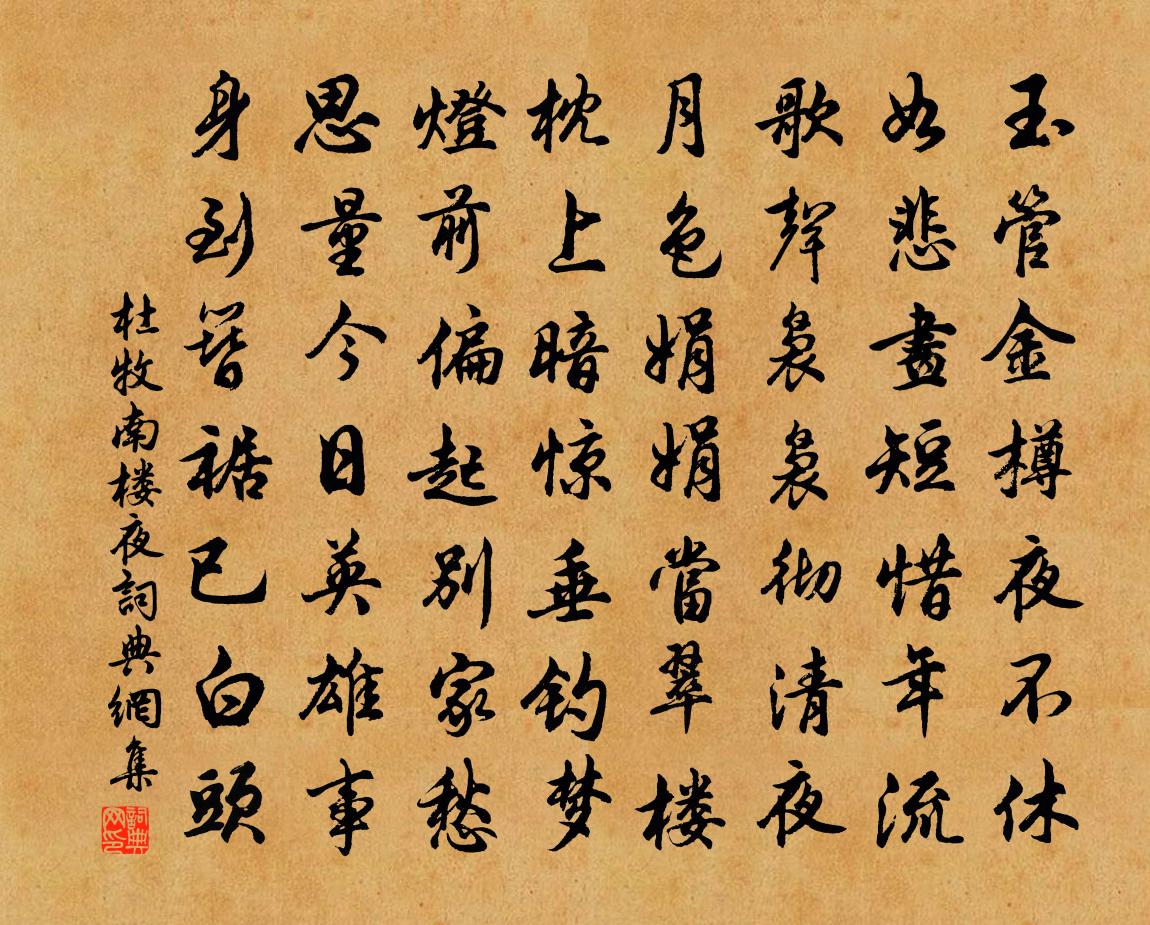 玉管金樽夜不休
如悲晝短惜年流
歌聲袅袅彻清夜
月色娟娟當翠楼
枕上暗惊垂钓梦
燈前偏起别家愁
思量今日英雄事
身到簪裾已白頭
杜牧南楼夜詞典網集
詞典网印